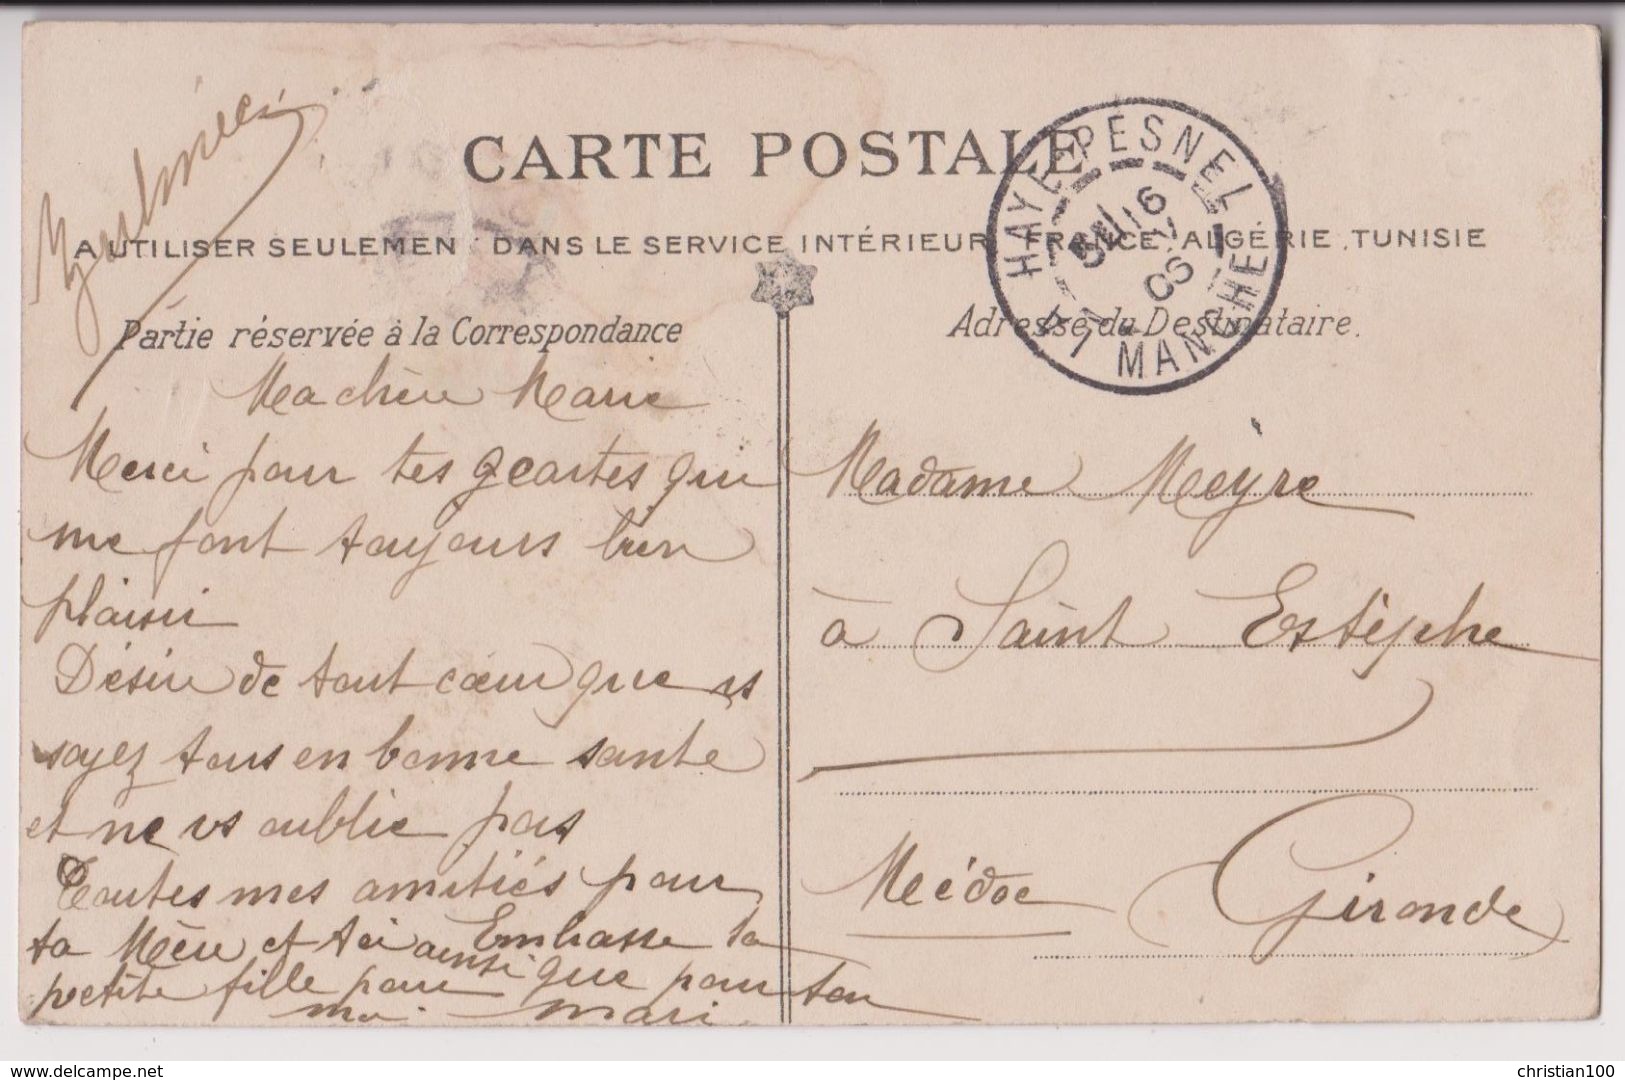 CARTE POSTALE
A UTILISER SEULEMEN DANS LE SERVICE INTÉRIEUR FRANCE, ALGÉRIE, TUNISIE
Partie réservée à la Correspondance
Ma chère Marie
Merci pour tes cartes qui
me font toujours bien
plaisir
Désire de tout cœur que vs
soyez tous en bonne sante
et ne vs oublie pas
Toutes mes amitiés pour
ta Mère et toi Embrasse ta
petite fille pour ainsi que pour ton
moi mari
Adresse du Destinataire.
Madame Meyre
à Saint Estèphe
Médoc Gironde
HAYE-PESNEL
6
MANCHE
delcampe.net
christian100